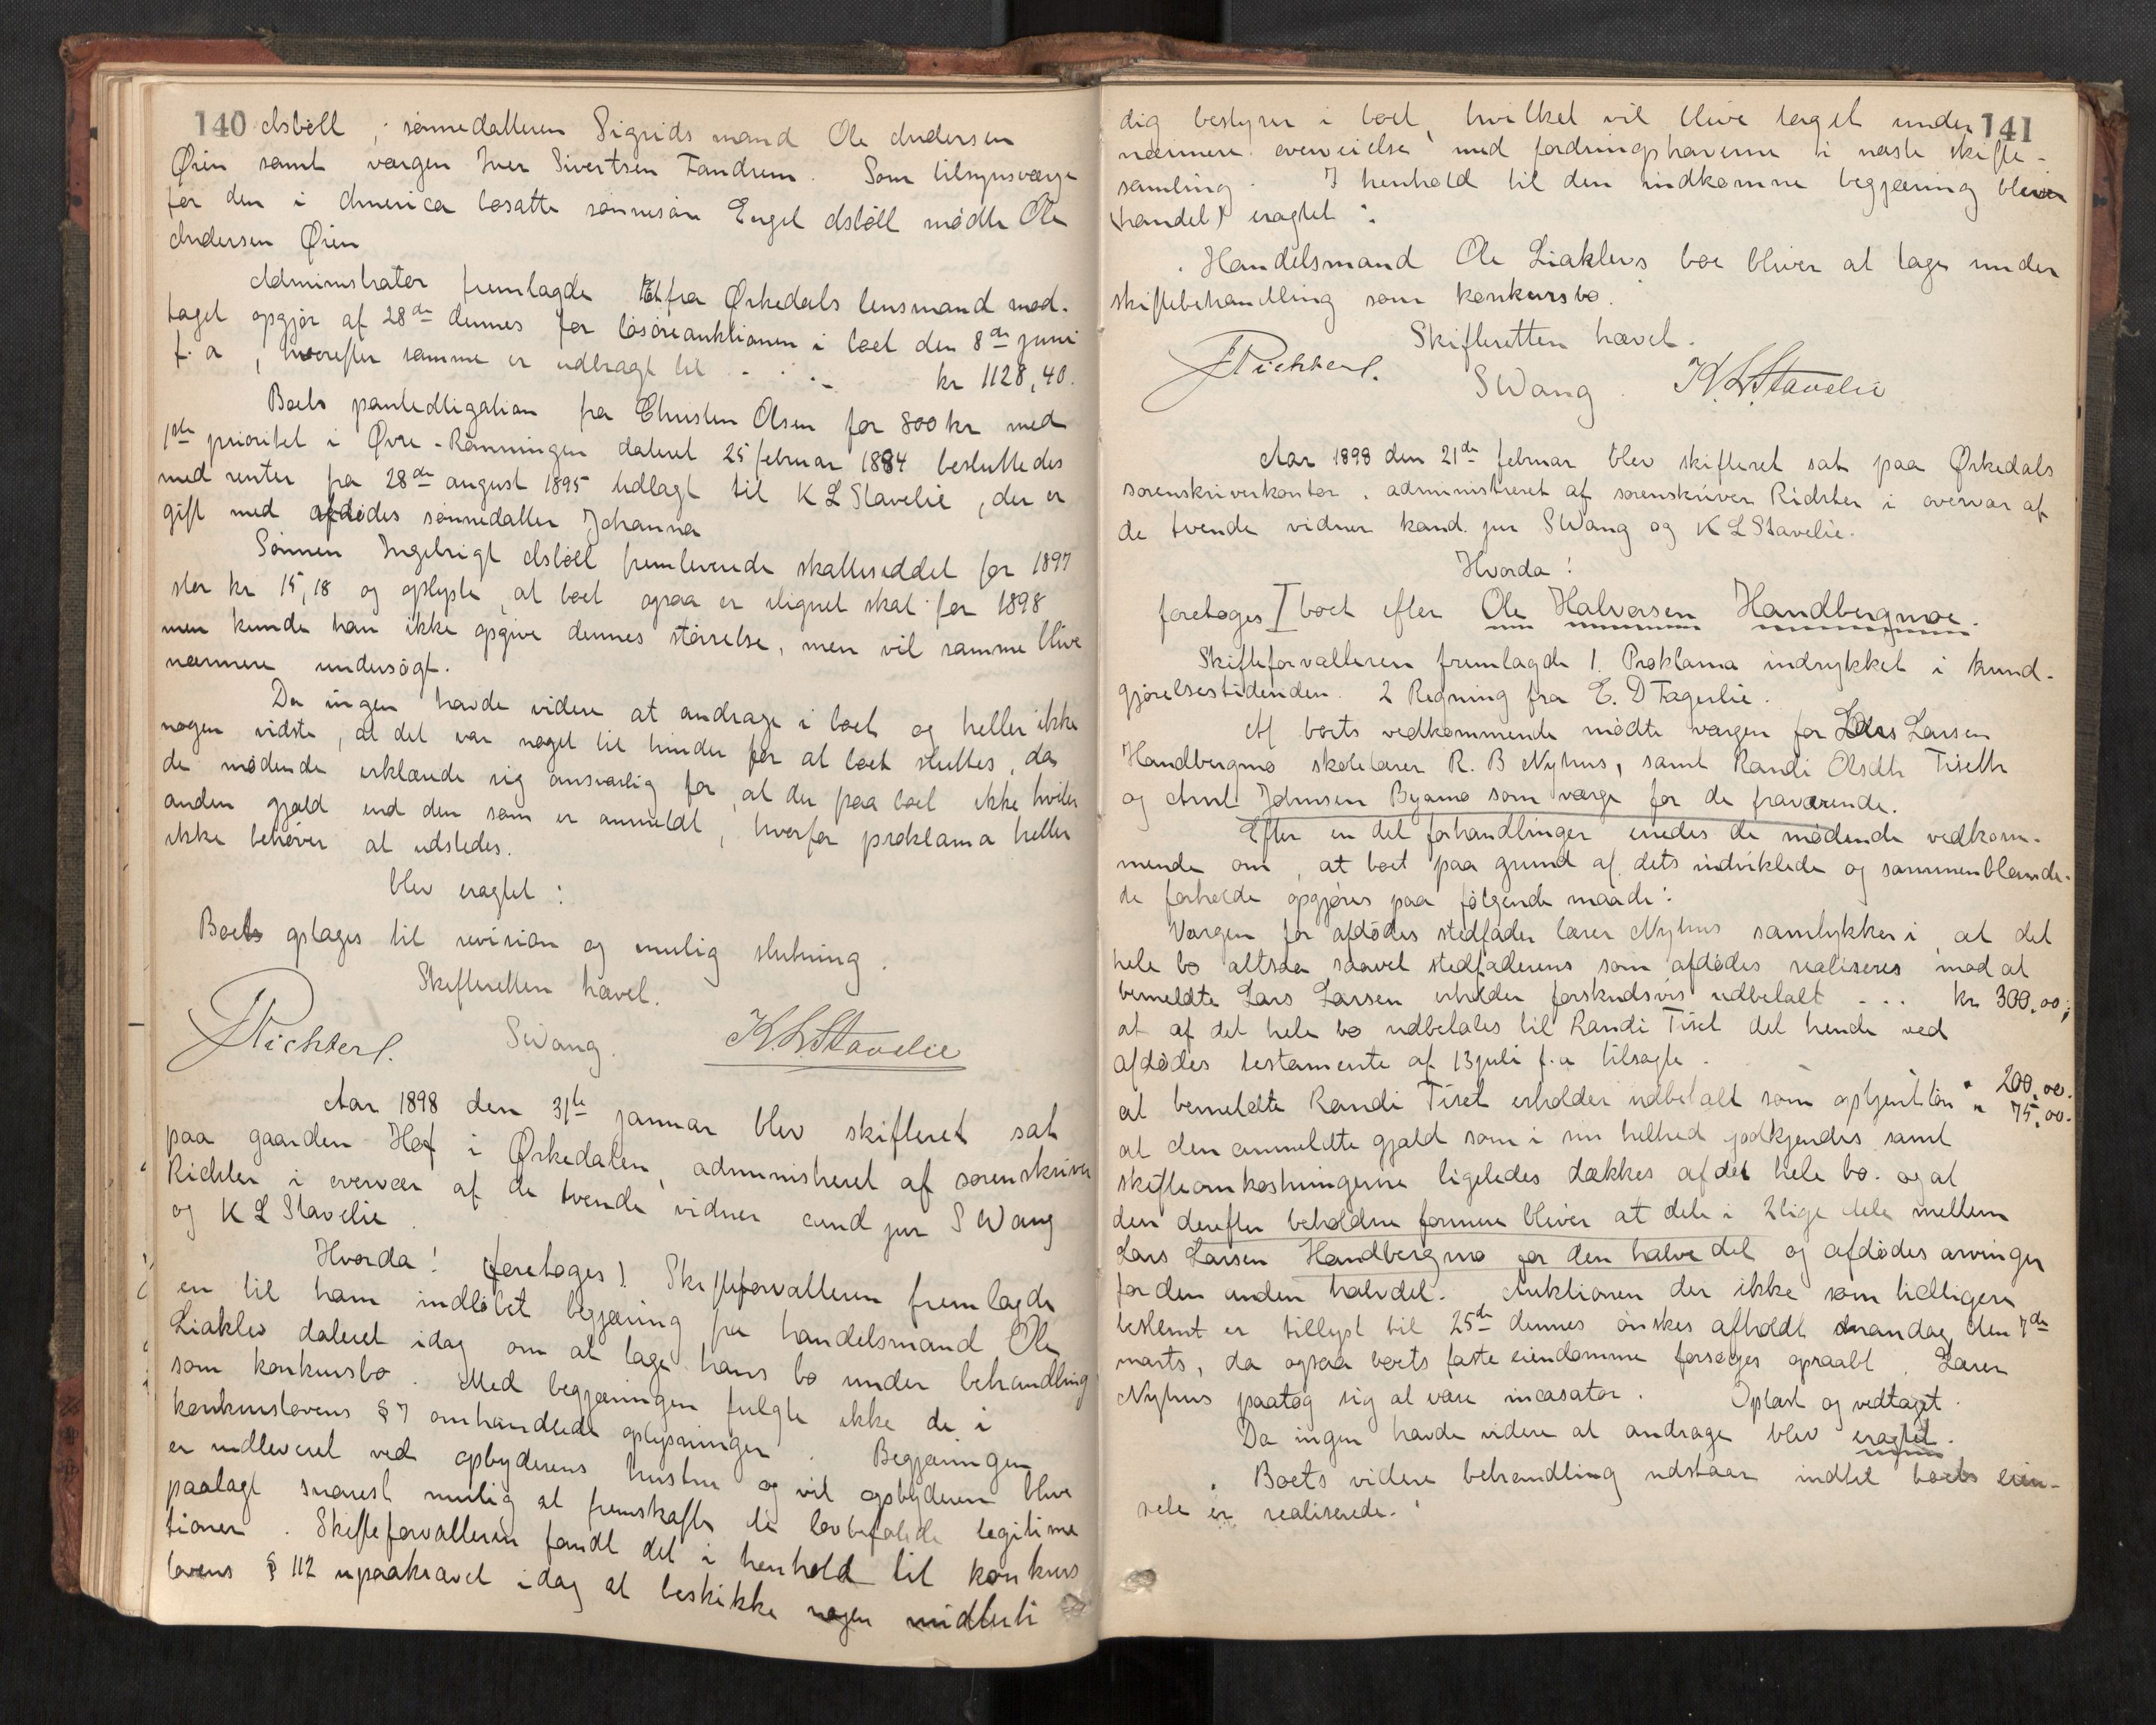 140
Asbøll, sønnedatteren Sigrids mand Ole Andersen
Øien samt værgen Iver Sivertsen Fandrem. Som tilsynsværge
for den i America bosatte sønnesøn Engel Asbøll mødte Ole
Andersen Øien
Administrator fremlagde et fra Ørkedals lensmand mod-
taget opgjør af 28de dennes for løsøreauktionen i boet den 8de juni
f. a, hvorefter samme er udbragt til - . . - kr 1128,40.
Boets pantobligation fra Christen Olsen for 800 kr med
1ste prioritet i Øvre-Rønningen dateret 25 februar 1884 besluttedes
med renter fra 28de august 1895 udlagt til K L Stavelie, der er
gift med afdødes sønnedatter Johanna
Sønnen Ingebrigt Asbøll fremleverede skatteseddel for 1897
stor kr 15,18 og oplyste, at boet ogsaa er ilignet skat for 1898
men kunde han ikke opgive dennes størrelse, men vil samme blive
nærmere undersøgt.
Da ingen havde videre at andrage i boet og heller ikke
nogen vidste, at det var noget til hinder for at boet sluttes, da
de mødende erklærede sig ansvarlig for, at der paa boet ikke hviler
anden gjæld end den som er anmeldt, hvorfor proklama heller
ikke behøver at udstedes.
blev eragtet:
Boet optages til revision og mulig slutning.
Skifteretten hævet.
Richter. SWang. K. L. Stavelie
Aar 1898 den 31te januar blev skifteret sat
paa gaarden Hof i Ørkedalen, administreret af sorenskriver
Richter i overvær af de tvende vidner cand jur S Wang
og K L Stavelie.
Hvorda! (foretoges) Skifteforvalteren fremlagde
en til ham indløbet begjæring fra handelsmand Ole
Liaklev dateret idag om at tage hans bo under behandling
som konkursbo. Med begjæringen fulgte ikke de i
konkurslovens § 7 omhandlede oplysninger. Begjæringen
er indleveret ved opbyderens hustru og vil opbyderen blive
paalagt snarest mulig at fremskaffe de lovbefalede legitima
tioner. Skifteforvalteren fandt det i henhold til konkurs
lovens § 112 upaakrævet idag at beskikke nogen midlerti
141
dig bestyrer i boet, hvilket vil blive taget under
nærmere overveielse med fordringshaverne i næste skifte-
samling. I henhold til den indkomne begjæring blev
(handel) eragtet:
Handelsmand Ole Liaklevs boe bliver at tage under
skiftebehandling som konkursbo.
Skifteretten hævet.
Richter. SWang. K. L. Stavelie
Aar 1898 den 21de februar blev skifteret sat paa Ørkedals
sorenskriverkontor, administreret af sorenskriver Richter i overvær af
de tvende vidner kand. jur SWang og K L Stavelie.
Hvorda!
foretoges I boet efter Ole Halvorsen Handbergmoe.
Skifteforvalteren fremlagde 1. Proklama indrykket i kund-
gjørelsestidenden. 2 Regning fra E. D Fagerlie.
Af boets vedkommende mødte værgen for Lars Larsen
Handbergmo skolelærer R. B Nyhus, samt Randi Olsdtr Tiseth
og Arnt Johnsen Byamo som værge for de fraværende.
Efter en del forhandlinger enedes de mødende vedkom-
mende om, at boet paa grund af dets indviklede og sammenblande-
de forholde opgjøres paa følgende maade:
Værgen for afdødes stedfader lærer Nyhus samtykker i, at det
hele bo altsaa saavel stedfaderens som afdødes realiseres mod at
bemeldte Lars Larsen erholder forskudsvis udbetalt - . . kr 300,00;
at af det hele bo udbetales til Randi Tiset det hende ved
afdødes testamente af 13 juli f. a tilsagte . " 200,00.
at bemeldte Randi Tiset erholder udbetalt som optjent løn " 75,00.
at den anmeldte gjæld som i sin helhed godkjendes samt
skifteomkostningerne ligeledes dækkes af det hele bo. og at
den derefter beholdne formue bliver at dele i 2 lige dele mellem
Lars Larsen Handbergmo for den halve del og afdødes arvinger
for den anden halvdel. Auktionen der ikke som tidligere
bestemt er tillyst til 25de dennes ønskes afholdt mandag den 7de
marts, da ogsaa boets faste eiendomme forsøges opraabt. Lærer
Nyhus paatog sig at være incasator. Oplæst og vedtaget.
Da ingen havde videre at andrage blev eragtet.
Boets videre behandling udstaar indtil boets eien-
dele er realiserede.